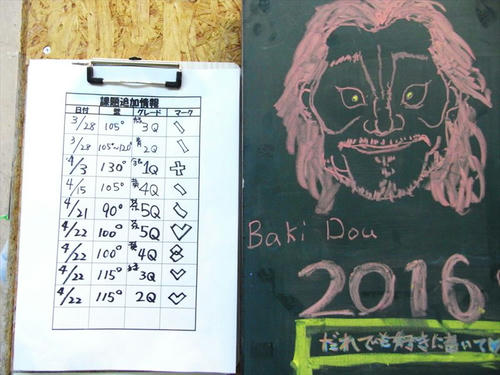 課題追加情報
日付 壁 グレード マーク
3/28 105° 3Q
3/28 105°~120° 2Q
4/3 130° 1Q
4/15 105° 4Q
4/21 90° 5Q
4/22 100° 5Q
4/22 100° 4Q
4/22 115° 3Q
4/22 115° 2Q
Baki Dou
2016
だれでも好きに書いて